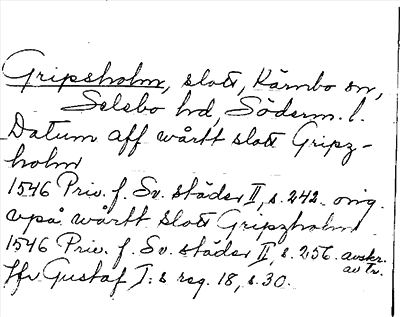 Gripsholm, slott, Kärnbo sn,
Selebo hd, Söderm. l.
Datum aff wårtt slott Gripz-
holm
1546 Priv. f. Sv. städer II, s. 242. orig.
vpå wårtt Slott Gripzholm
1546 Priv. f. Sv. städer II, s. 256. avskr.
av Tr.
Jfr Gustaf I:s reg. 18, s. 30.